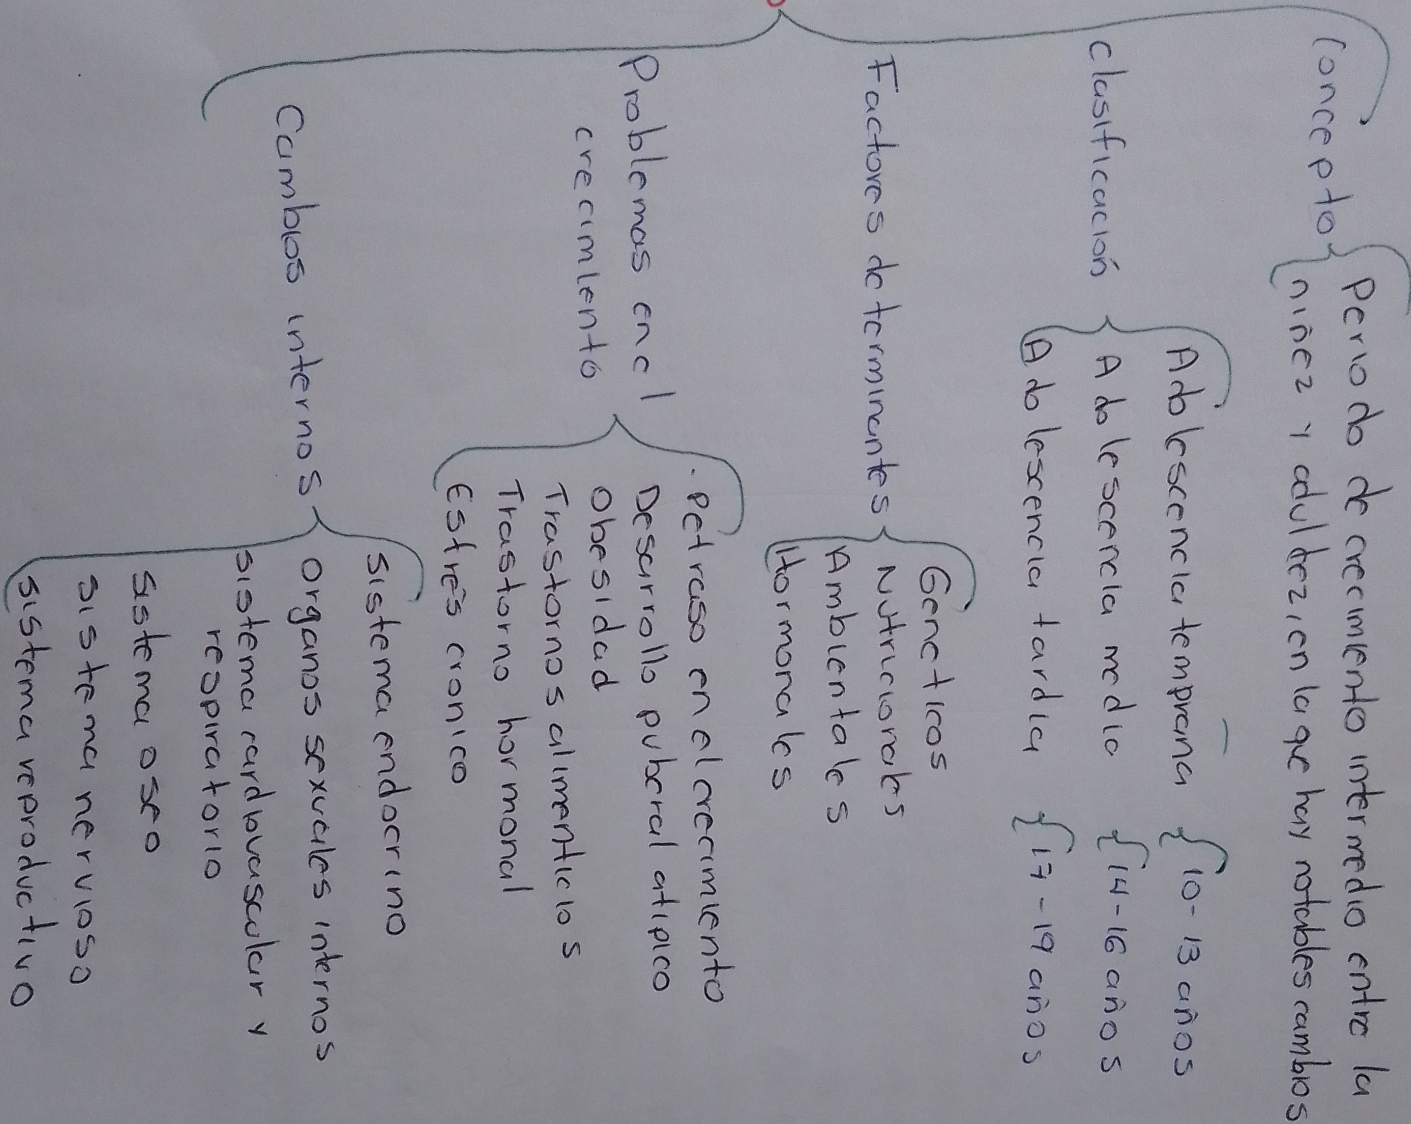 Concepto
Periodo de crecimiento intermedio entre la
niñez y adultez, en la que hay notables cambios
Clasificación
Adolescencia temprana
10-13 años
Adolescencia media
14-16 años
Adolescencia tardia
17-19 años
Factores determinantes
Geneticos
Nutricionales
Ambientales
Hormonales
Problemas en el
crecimiento
. Retraso en el crecimiento
Desarrollo puberal atipico
Obesidad
Trastornos alimenticios
Trastorno hormonal
Estrés cronico
Cambios internos
Sistema endocrino
Organos sexuales internos
Sistema cardiovascular y
respiratorio
Sistema oseo
Sistema nervioso
Sistema reproductivo